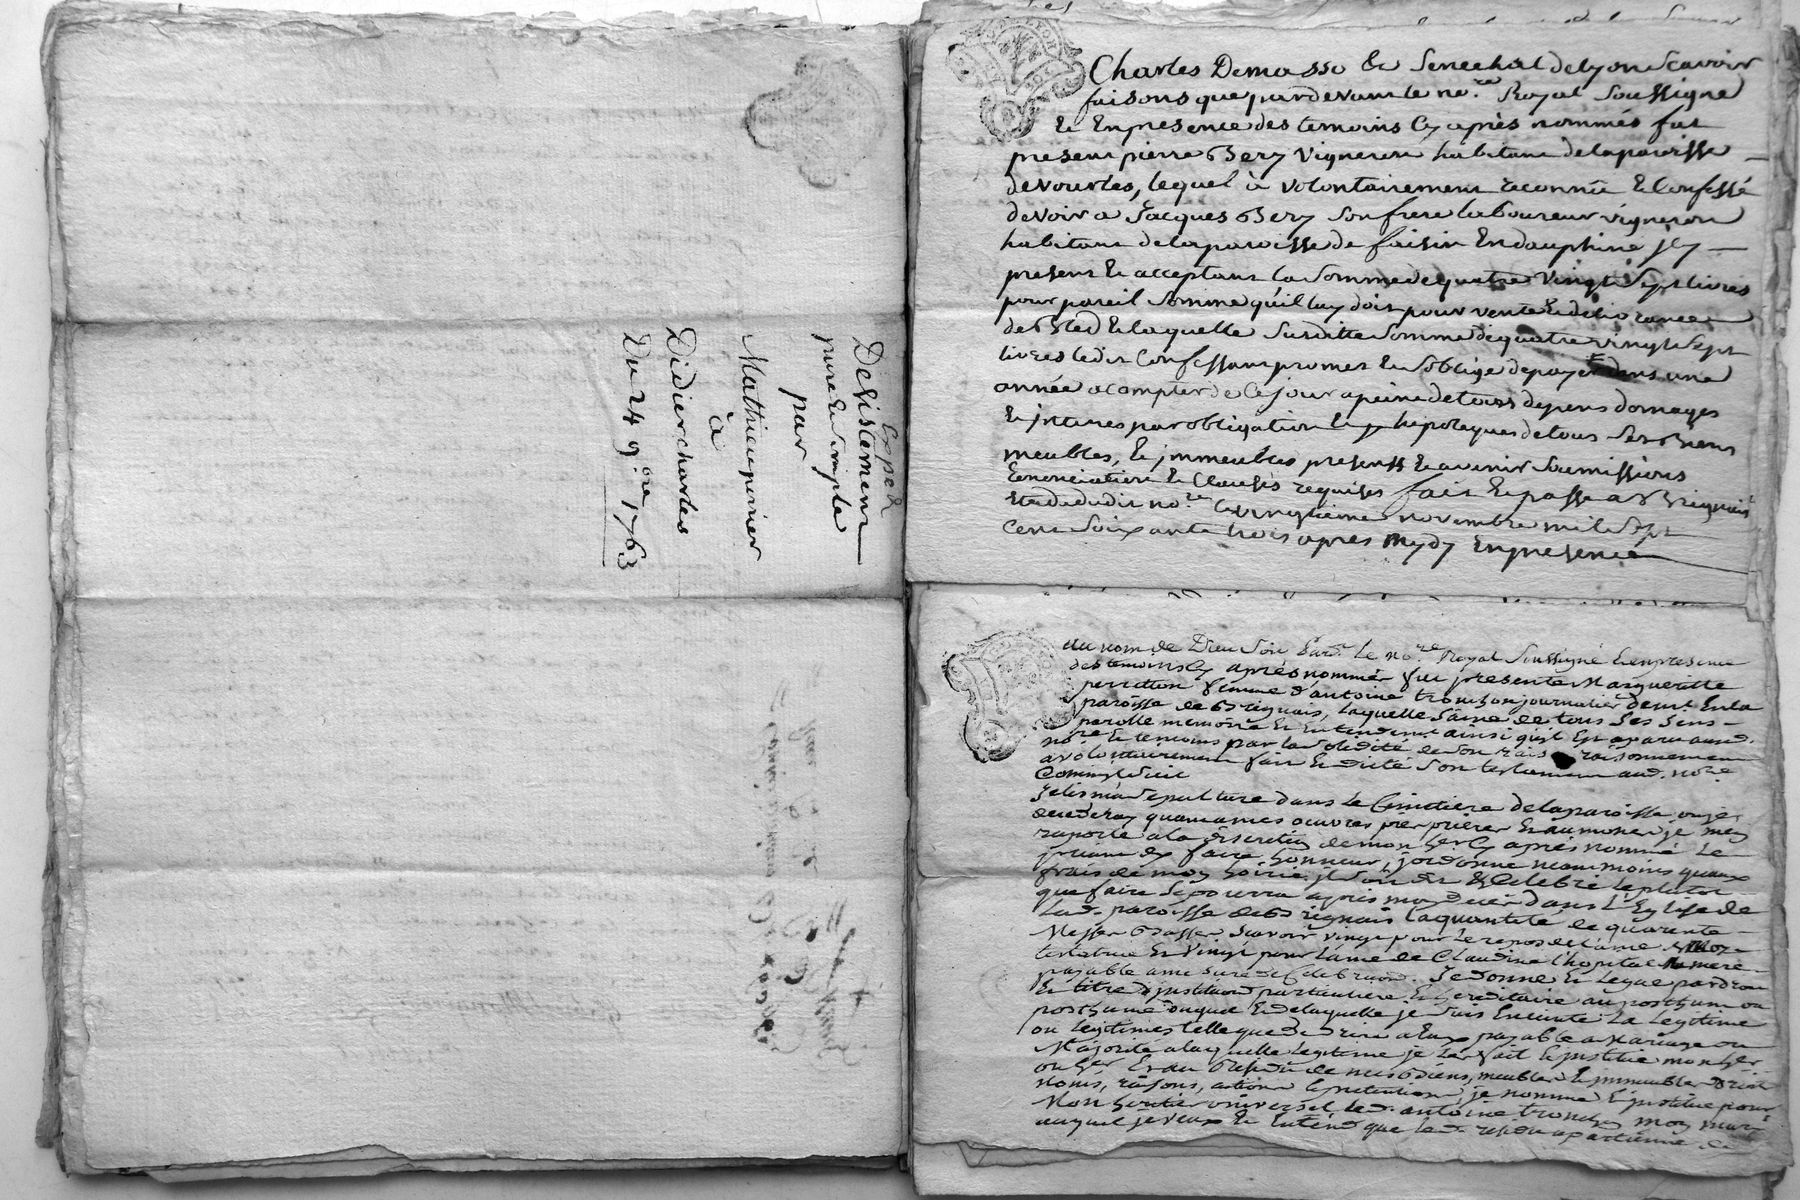 Exped
Desistement
pure & simple
par
Mathieu perrier
à
Didier charles
Du 24 9.bre 1763
Charles Demasso &c Senechal de lyon Scavoir
faisons que pardevant le no.re Royal Soussigné
& En presence des temoins Cy après nommés fut
present pierre Bery Vigneron habitant de la paroisse
de vourles, lequel à volontairement reconnu & Confessé
devoir a Jacques Bery Son frere laboureur vigneron
habitant de la paroisse de faisin En dauphiné jcy
present & acceptant la Somme de quatre Vingt Sept livres
pour pareil Somme qu'il luy doit pour vente & delivrance
de Bled & laquelle Susditte Somme de quatre vingt Sept
livres ledit Confessant promet & S'oblige de payer dans une
année a compter de Ce jour a peine de tous depens domages
& jnterets par obligation & hipoteques de tous Ses Biens
meubles, & jmmeubles presents & avenir Soumissions
Renonciations & Clauses requises fait & passé a Brignais
Etude dudit no.re le vingtieme novembre mil Sept
Cent Soixante trois apres Mydy En presence
Au nom de Dieu Soit Pard.t Le no.re Royal Soussigné & en presence
des temoins Cy après nommés fut presente Margueritte
perretton femme d'antoine tronchon journalier demt En la
paroisse de Brignais, laquelle Saine de tous Ses Sens
parolle memoire & Entendemt ainsi qu'il Est aparu aud.
no.re & temoins par la Solidité de Son raisonnement
a volontairement fait & dicté Son testament aud. no.re
Comme Suit
Jelis ma Sepulture dans le Cimetiere de la paroisse ou je
decederay quant a mes oeuvres pies prieres & aumones je m'en
raporte a la discretion de mon her Cy après nommé Le
priant d'y faire honneur, j'ordonne neanmoins qu'aux
frais de moy hoirie jl Soit dit & Celebré le plutot
que faire Se pourra après mon decer dans L'Eglise de
Lad. paroisse de Brignais la quantité de quarante
Messes Basses Scavoir vingt pour le repos de l'ame de moy
testatrice Et Vingt pour L'ame de Claudine l'hopital ma mere
payable a mesure de Celebration. Je donne & Legue par droit
& titre d'jnstitution particuliere & hereditaire au posthume ou
posthume duquel & de laquelle je Suis Enceinte La Legitime
ou Legitimes telle que de droit a Eux payable a Mariage ou
Majorité a laquelle Legitime je Les fait & jnstitue mon her
ou her Et au Residu de mes Biens, meubles & jmmeubles droits
noms, raisons, actions & pretentions je nomme & jnstitue pour
Mon heritier universel led. antoine tronchon mon mari
auquel je veux & Entend que led. residu apartienne de